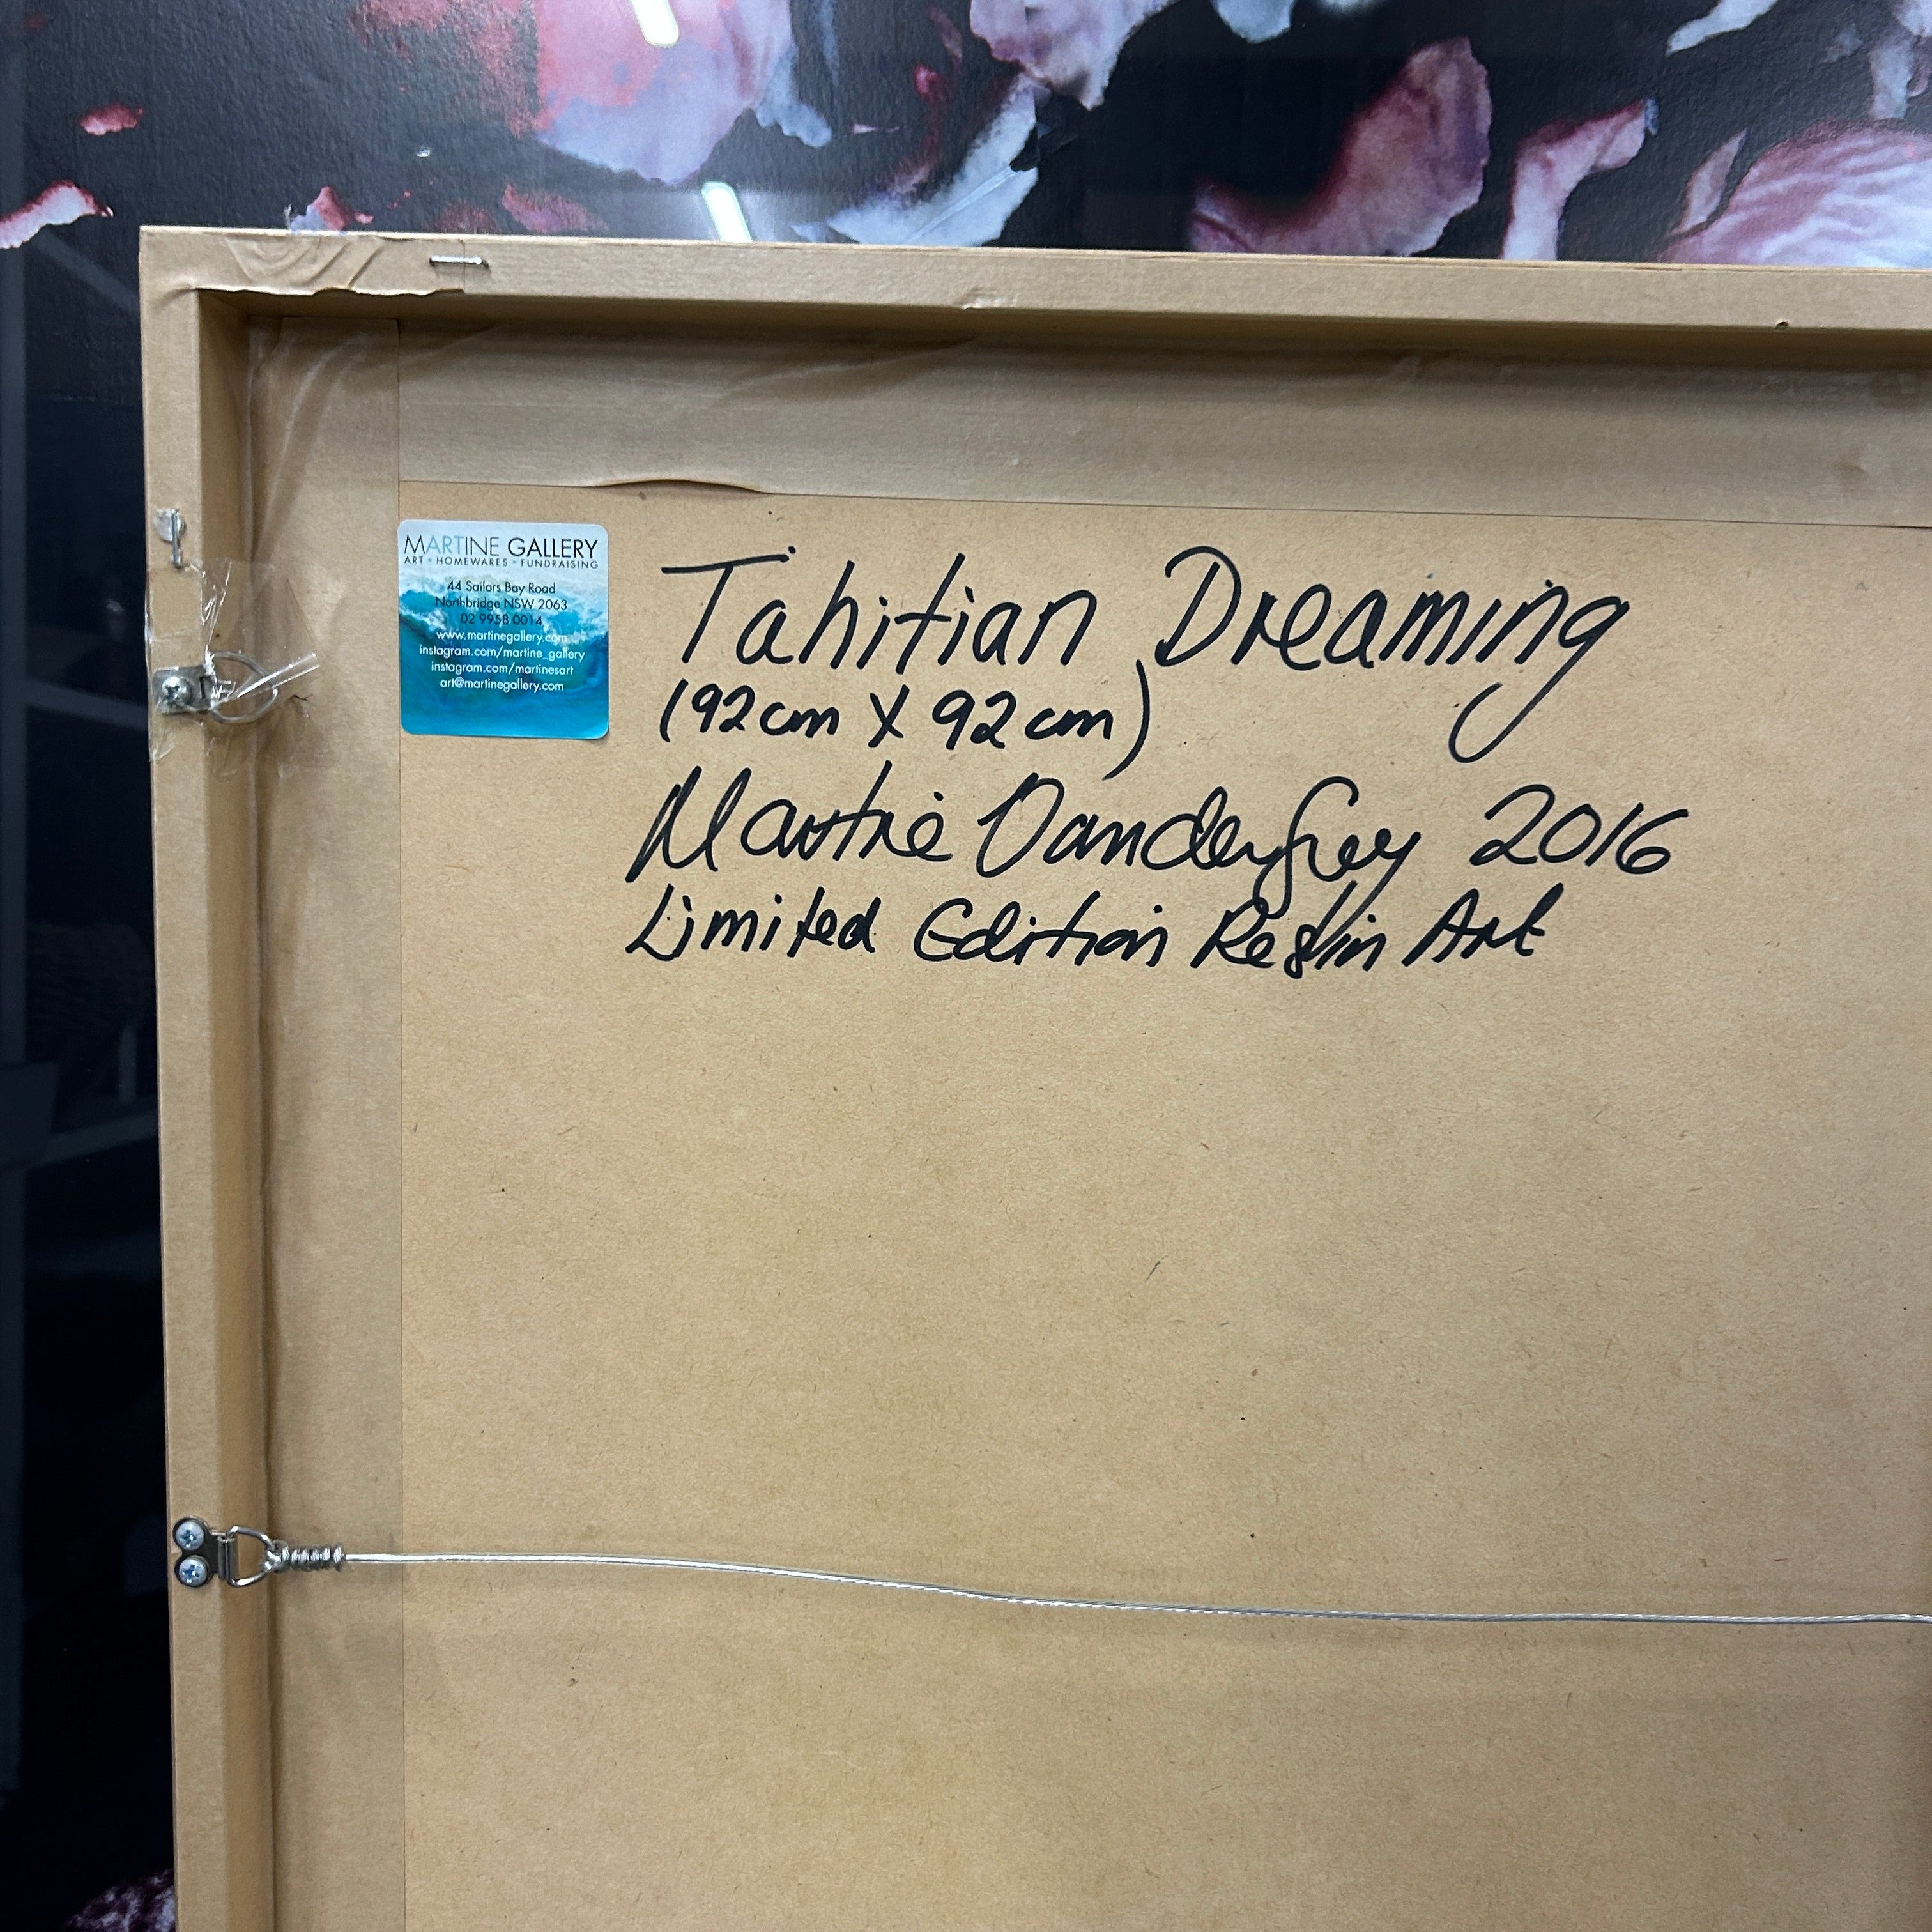 MARTINE GALLERY
ART • HOMEWARES • FUNDRAISING
44 Sailors Bay Road
Northbridge NSW 2063
02 9958 0014
www.martinegallery.com
instagram.com/martine_gallery
instagram.com/martinesart
art@martinegallery.com
Tahitian Dreaming
(92cm X 92cm)
Martine Vanderfrey 2016
Limited Edition Resin Art